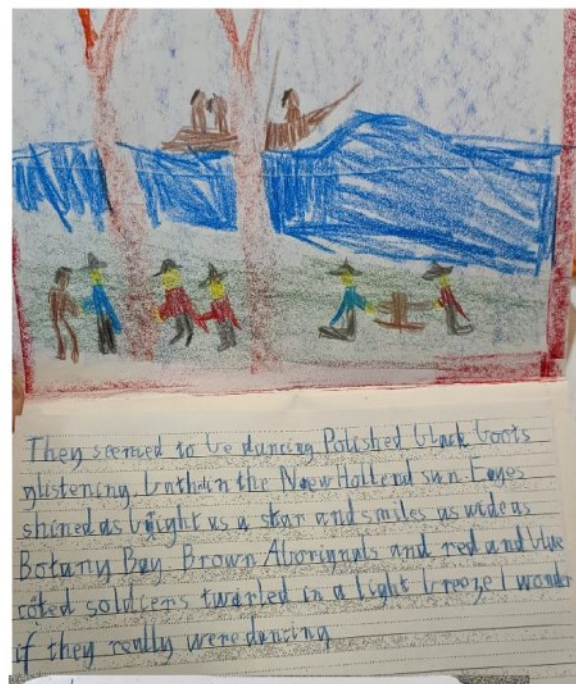 They seemed to be duncing Polished black boots
glistening bathd in the New Hollend sun Eeyes
shined as bright as a star and smiles as wide as
Botany Bay Brown Aboriginals and red and blue
coted soldiers twarled in a light breeze I wonder
if they really were duncing